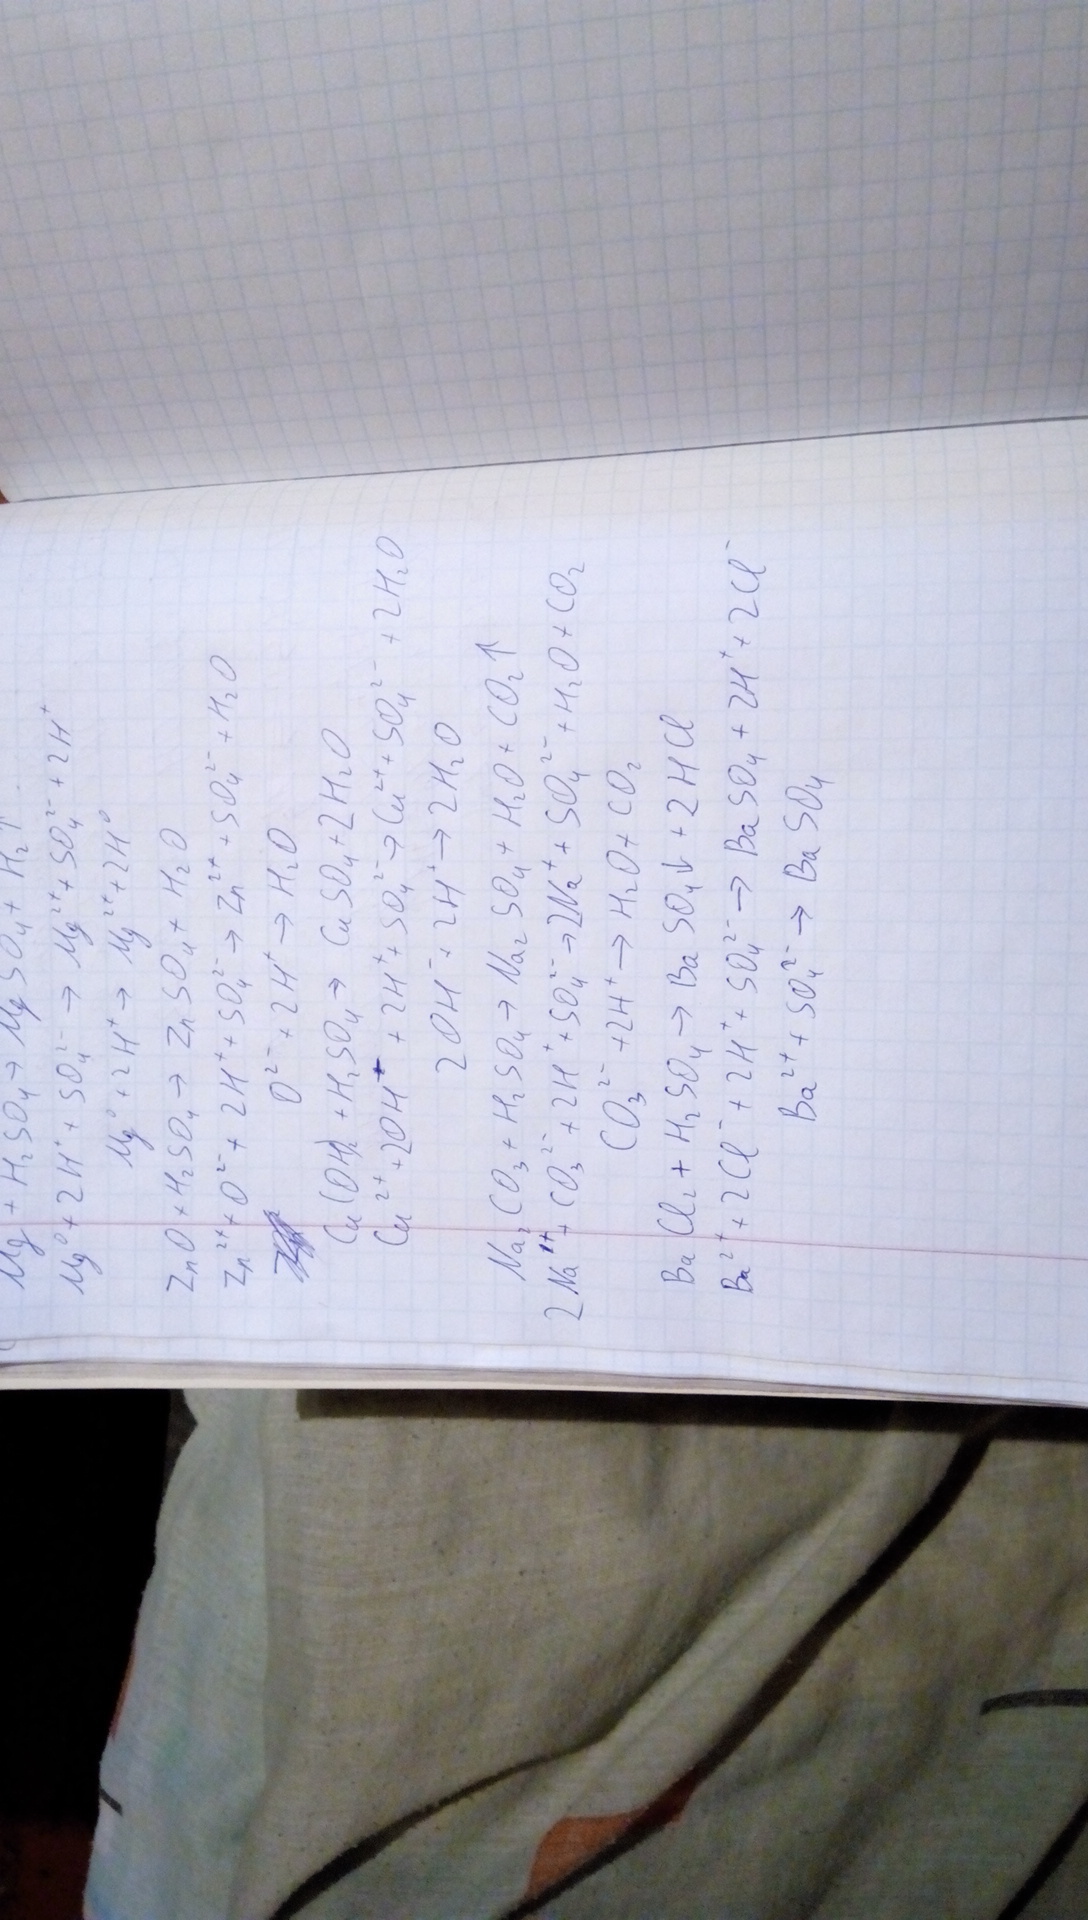 Mg + H₂SO₄ → MgSO₄ + H₂↑
Mg⁰ + 2H⁺ + SO₄²⁻ → Mg²⁺ + SO₄²⁻ + 2H⁺
Mg⁰ + 2H⁺ → Mg²⁺ + 2H⁰
ZnO + H₂SO₄ → ZnSO₄ + H₂O
Zn²⁺ + O²⁻ + 2H⁺ + SO₄²⁻ → Zn²⁺ + SO₄²⁻ + H₂O
O²⁻ + 2H⁺ → H₂O
Cu(OH)₂ + H₂SO₄ → CuSO₄ + 2H₂O
Cu²⁺ + 2OH⁻ + 2H⁺ + SO₄²⁻ → Cu²⁺ + SO₄²⁻ + 2H₂O
2OH⁻ + 2H⁺ → 2H₂O
Na₂CO₃ + H₂SO₄ → Na₂SO₄ + H₂O + CO₂↑
2Na¹⁺ + CO₃²⁻ + 2H⁺ + SO₄²⁻ → 2Na⁺ + SO₄²⁻ + H₂O + CO₂
CO₃²⁻ + 2H⁺ → H₂O + CO₂
BaCl₂ + H₂SO₄ → BaSO₄↓ + 2HCl
Ba²⁺ + 2Cl⁻ + 2H⁺ + SO₄²⁻ → BaSO₄ + 2H⁺ + 2Cl⁻
Ba²⁺ + SO₄²⁻ → BaSO₄